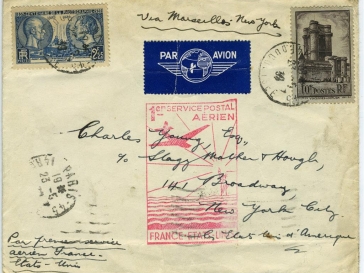 via Marseilles New York
CENTENAIRE DE LA PHOTOGRAPHIE
2F25
PAR AVION
10F POSTES RF
1er SERVICE POSTAL
AÉRIEN
Charles Young, Esq,
c/o Stagg Mather & Hough,
141 Broadway,
New York City
Etats-Unis d'Amerique
FRANCE-ETATS-UNIS
PARIS
Par premier service
aérien France-
Etats-Unis